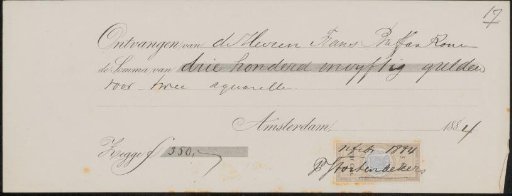 17
Ontvangen van de Heeren Frans Buffa & Zonen
de Somma van drie honderd en vyftig gulden
voor twee aquarelle
Amsterdam, 1884
Zegge f 350,-
1 feb 1884
P Stortenbeker